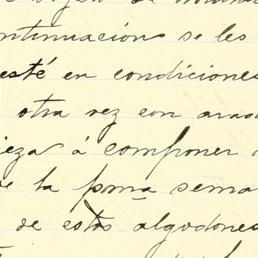 ntinuación se les
esté en condiciones
otra vez con arad
ieza á componer
la pma sema
de estos algodones